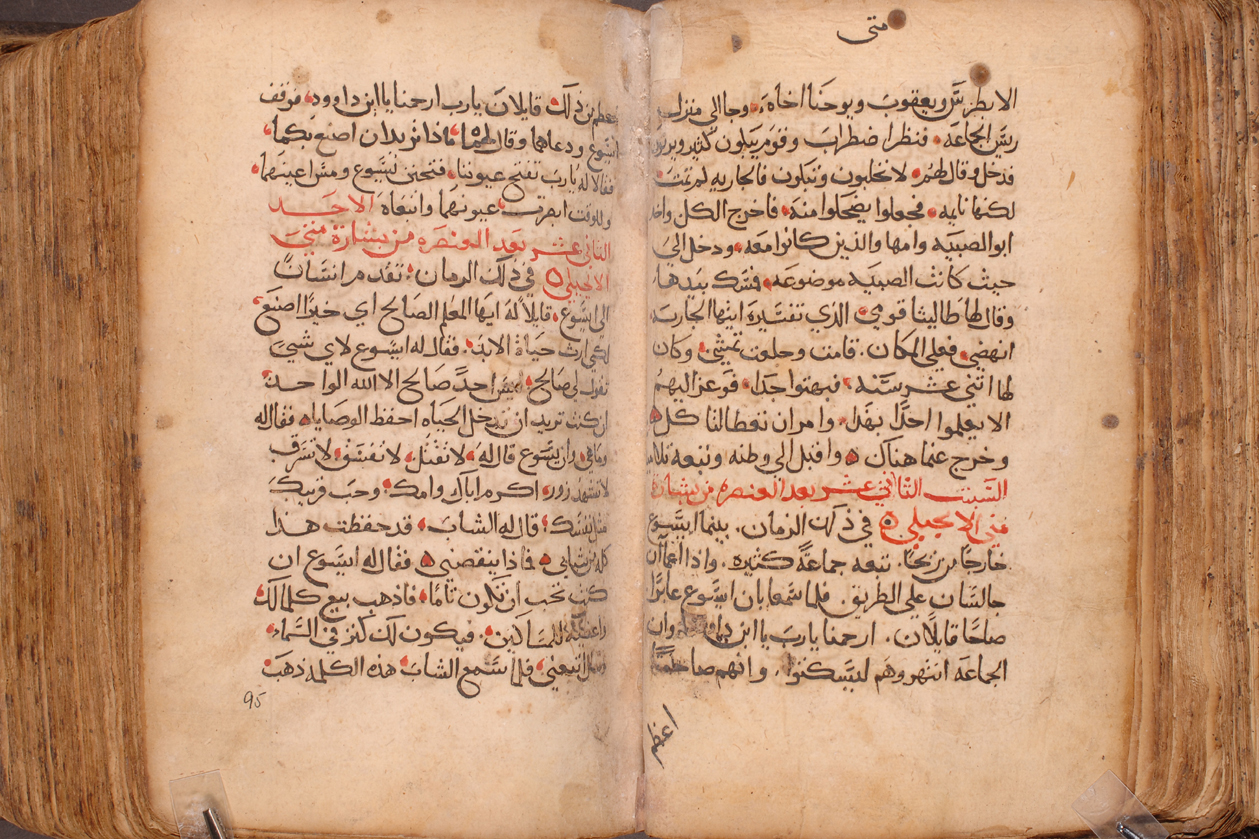 متى
الا بطرس ويعقوب ويوحنا اخاه، وجا الى منزل
ريس الجماعه، فنظر اضطراب وقوم يبكون كثير ويولولون
فدخل وقال لهم، لا تجلبون وتبكون فالجاريه لم تمت
لكنها نايمه، فجعلوا يضحكوا منه، فاخرج الكل واخذ
ابو الصبيه وامها والذين كانوا معه، ودخل الى
حيث كانت الصبيه موضوعه، فمسك بيدها،
وقال لها طاليثا قومي، الذي تفسيره ايتها الجاريه
انهضي، فعلى المكان. قامت وجلعت تمشي، وكان
لها اثني عشر سنه، فبهتوا جدا، فوعز اليهم
الا يعلموا احدا بهذا، وامر ان تعطا لتاكل
وخرج عنما هناك واقبل الى وطنه وتبعه تلاميذه
السبت الثاني عشر بعد العنصره من بشارة
متى الانجيلي في ذلك الزمان. بينما ايسوع
خارجا من ريحا. تبعه جماعة كثيره. واذا اعمآن
جالسان على الطريق. فلما سمعا بان ايسوع عابرا
صاحا قايلان. ارحمنا يارب يا ابن داوود وان
الجماعه انتهروهم ليسكتوا. وانهم صاحا
اعظم
اعظم من ذلك قايلان يارب ارحمنا يا ابن داوود، فوقف
ايسوع ودعاهما وقال لهما، ماذا تريدان اصنع بكما،
فقالا له يارب تفتح عيوننا، فتحنن ايسوع ومس اعينهما،
وللوقت ابصرت عيونهما واتبعاه الاحد
الثاني عشر بعد العنصره من بشارة متى
الانجيلي في ذلك الزمان، تقدم انسان
الى ايسوع، قايلا له ايها المعلم الصالح اي خيرا اصنع
لكي ارث حياة الابد، فقال له ايسوع لاي شي
تقول لي صالح، ليس احد صالح الا الله الواحد،
ان كنت تريد ان تدخل الحياه احفظ الوصايا، فقال له
وما هي، وان ايسوع قال له، لا تقتل، لا تفسق، لا تسرق
لا تشهد زور، اكرم اباك وامك، وحب قريبك
مثل نفسك، قال له الشاب، قد حفظت هذا
كله من شبابي، فاذا ينقصني، فقال له ايسوع ان
كنت تحب ان تكون تاما، فاذهب بيع كلما لك،
واعطيه للمساكين، فيكون لك كنز في السماء،
وتعال اتبعني، فلما سمع الشاب هذه الكلمه ذهب
95